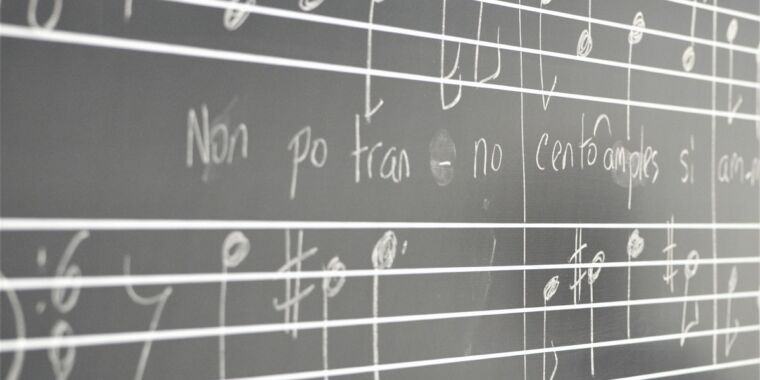 Non po tran - no cento amples si am